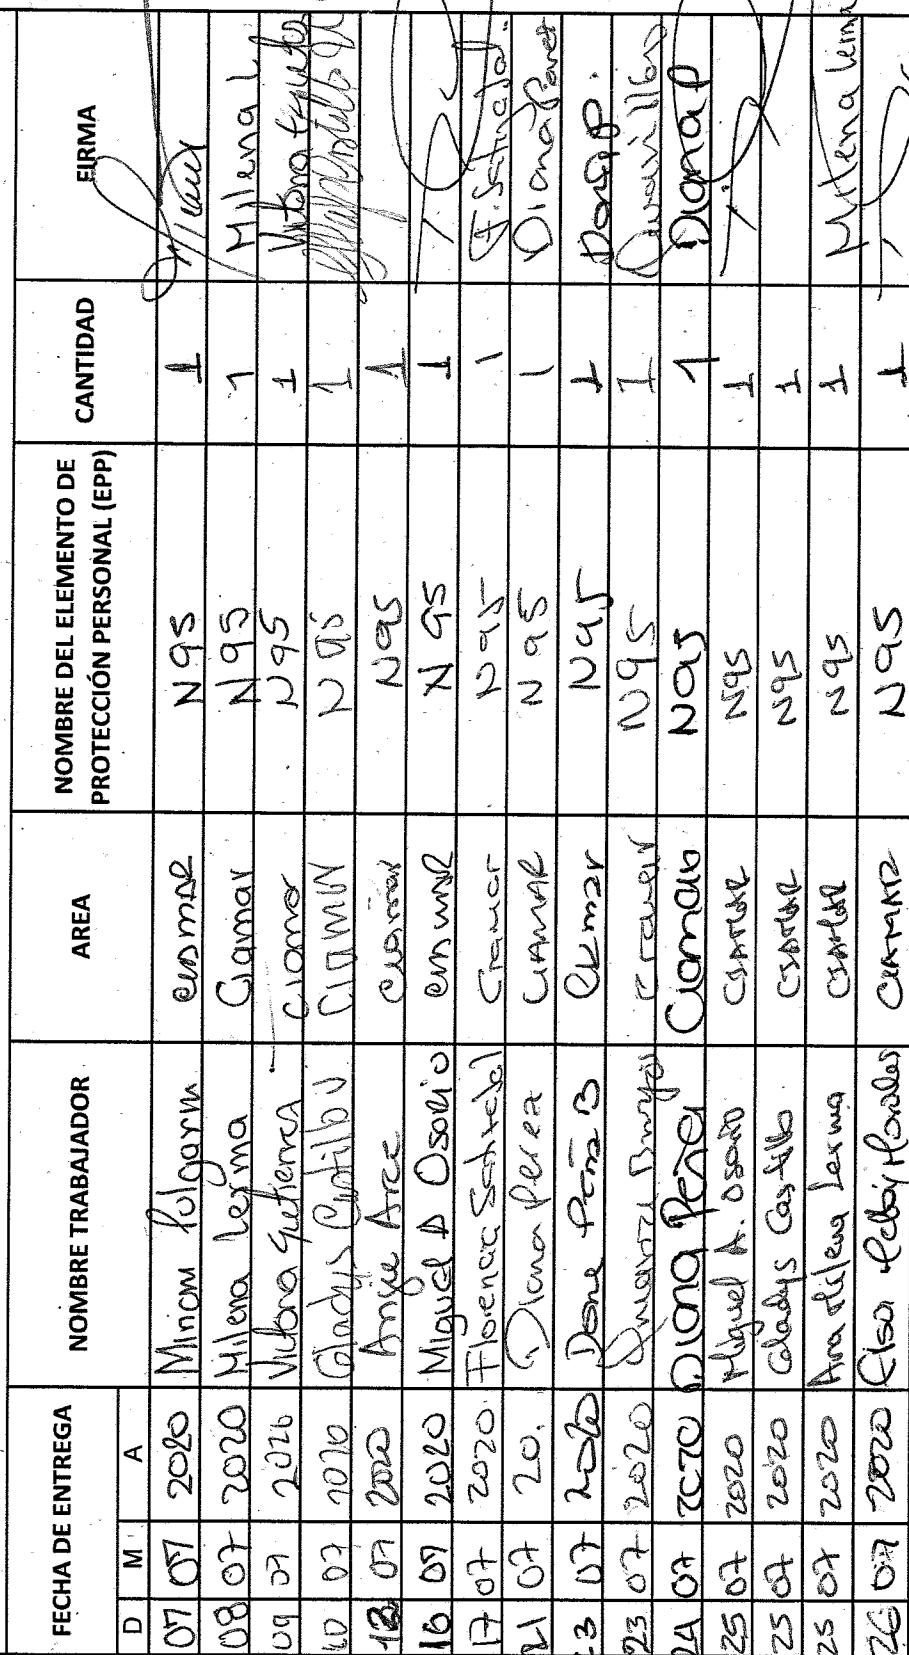 FECHA DE ENTREGA NOMBRE TRABAJADOR AREA NOMBRE DEL ELEMENTO DE PROTECCIÓN PERSONAL (EPP) CANTIDAD FIRMA
D M A
07 07 2020 Miriam Pulgarin CIAMAR N95 1
08 07 2020 Milena Lerma Ciamar N95 1 Milena L
09 07 2020 Vitora Gutierrez Ciamar N95 1
10 07 2020 Gladys Castillo V CIAMAR N95 1
13 07 2020 Angie Arce Ciamar N95 1
16 07 2020 Miguel A Osorio CIAMAR N95 1
17 07 2020 Florencia Ciamar N95 1
21 07 20. Diana Perez CIAMAR N95 1 Diana Perez
3 07 2020 Peña B N95 1
23 07 2020 N95 1
24 07 2020 Diana Peña Ciamar N95 1 Diana P
25 07 2020 Miguel A. Osorio CIAMAR N95 1
25 07 2020 Gladys Castillo CIAMAR N95 1
25 07 2020 Ana Milena Lerma CIAMAR N95 1 Milena Lerma
26 07 2020 Morales CIAMAR N95 1